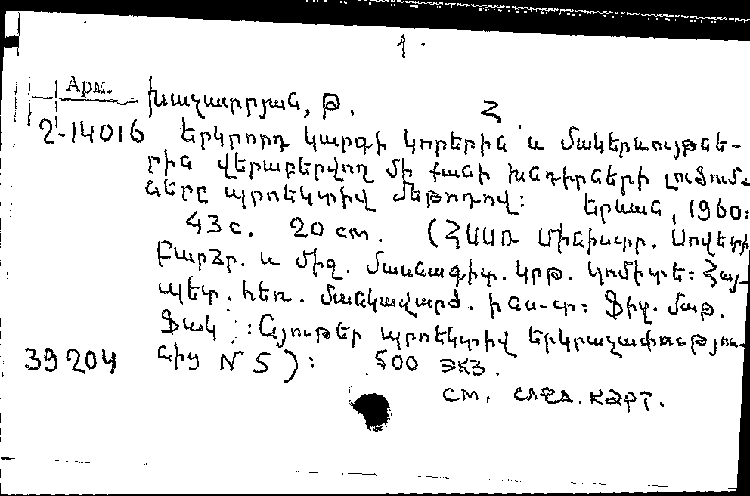 1.
Արմ. Խաչատրյան, Թ. Հ
2-14016 Երկրորդ կարգի կորերին և մակերևույթնե-
րին վերաբերվող մի քանի խնդիրների լուծում-
ները պրոեկտիվ մեթոդով: Երևան, 1960:
43 с. 20 см. (ՀՍՍՌ Մինիստր. Սովետի
Բարձր. և միջ. մասնագիտ. կրթ. կոմիտե: Հայ-
պետ. հեռ. մանկավարժ. ինս-տ: Ֆիզ. մաթ.
Ֆակ.: Նյութեր պրոեկտիվ երկրաչափությու-
39204 նից N 5): 500 экз.
см. след. карт.